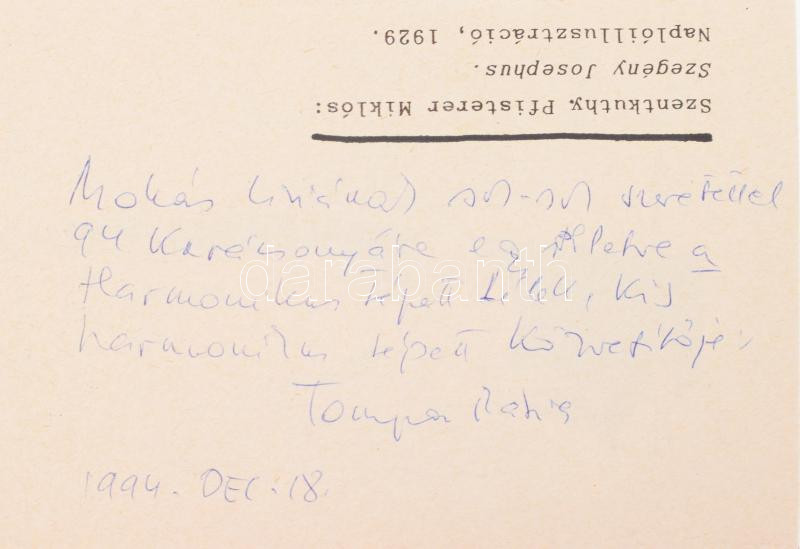 Szentkuthy Pfisterer Miklós:
Szegény Josephus.
Naplóillusztráció, 1929.
Mohás Líviának sok-sok szeretettel
94 Karácsonyára egy illetve a
Harmonikus tépett Lélek, kis
harmonikus tépett Közvetítője:
Tompa Mária
1994. DEC. 18.
darabanth